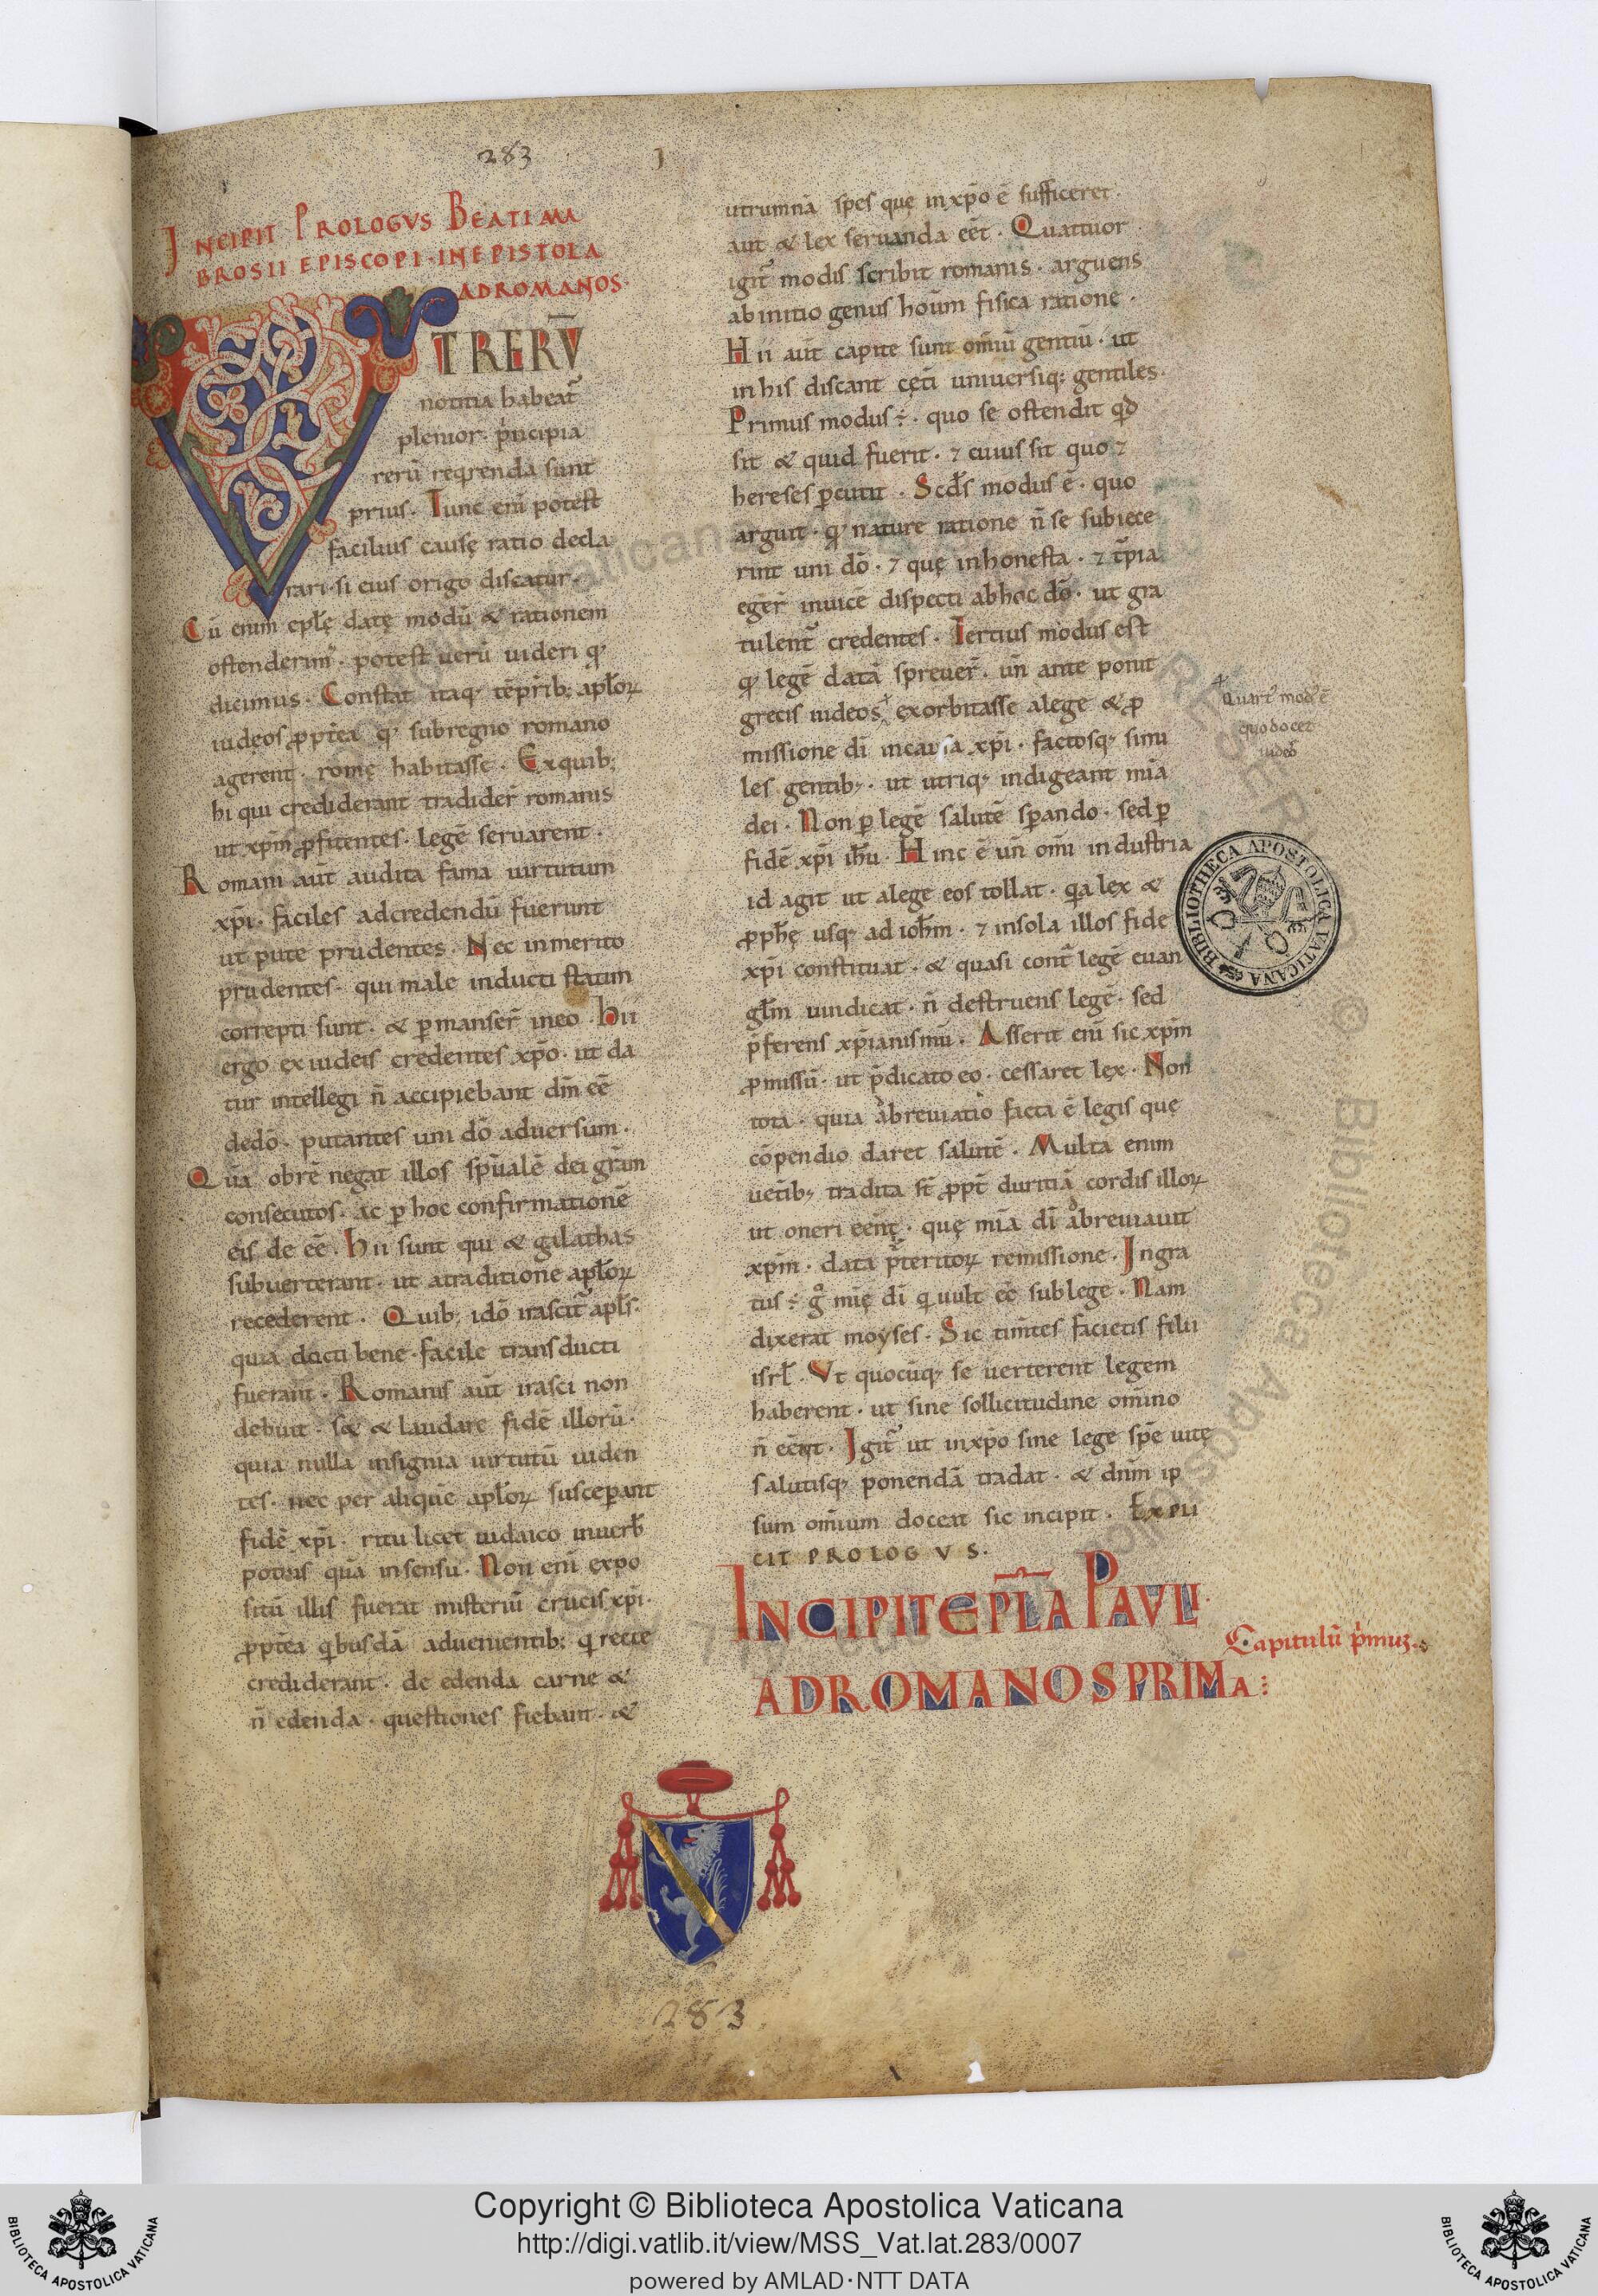 283
INCIPIT PROLOGVS BEATI AM
BROSII EPISCOPI · IN EPISTOLA
AD ROMANOS·
VT RERṼ
notitia habeat᷑
plenior. p̍ncipia
rerū req̍renda sunt
prius. Tunc eni᷑ potest
facilius causę ratio decla
rari· si eius origo discatur.
Cū enim ep̅lę datę modū & rationem
ostenderim᷒. potest uerū uideri qͥ
dicimus. Constat itaqꝫ tēp̍rib; apl̅oꝝ
iudęos ꝓpt̅ea qͥ sub regno romano
agerent. romę habitasse. Exquib;
hi qui crediderant tradider̅ romanis
ut xp̅m ꝓfitentes. legē seruarent.
Romani aut̅ audita fama uirtutum
xp̅i. faciles adcredendū fuerunt
ut pute prudentes. Nec inmerito
prudentes. qui male inducti statim
correpti sunt. & ꝑmanser̅ ineo. Hii
ergo ex iudeis credentes xp̅o. ut da
tur intellegi n̅ accipiebant dm̅ eē
dedō. putantes uni dō aduersum.
Quā obrē negat illos sp̅ualē dei gr̅am
consecutos. ac ꝑ hoc confirmationē
eis de eē. Hii sunt qui & galathas
subuerterant. ut atraditione apl̅oꝝ
recederent. Quib; idō irascit᷑ apl̅s.
quia docti bene. facile transducti
fuerant. Romanis aut̅ irasci non
debuit. s& & laudare fidē illorū.
quia nulla insignia uirtutū uiden
tes. nec per aliquē apl̅oꝝ susceꝑant
fidē xp̅i. ritu licet iudaico inuerb̅
potius quā insensu. Non eni᷑ expo
sitū illis fuerat misteriū crucis xp̅i.
ꝓpt̅ea qͥbusdā aduenientib; qͥ recte
crediderant. de edenda carne &
n̅ edenda. questiones fiebant. &
utrumnā spes quę inxp̅o ē sufficeret.
aut & lex seruanda eēt. Quattuor
igit᷑ modis scribit romanis. arguens
abinitio genus hoūm fisica ratione.
Hii aut̅ capite sunt om̅iū gentiū. ut
inhis discant cęt̅i uniuersiq; gentiles.
Primus modus ÷. quo se ostendit qđ
sit & quid fuerit. ⁊ cuius sit quo ⁊
hereses ꝑcutit. Scd̅s modus ē. quo
arguit. qͥ nature ratione n̅ se subiece
rint uni dō. ⁊ quę inhonesta. ⁊ t᷑pia
eger̅ inuicē dispecti abhoc dō. ut gra
tulent᷑ credentes. Tertius modus est
qͥ legē datā spreuer̅. un̅ ante ponit
grecis iudeos. exorbitasse alege & ꝓ
missione di̅ incausa xp̅i. factosqꝫ simi
les gentibꝫ. ut utriqꝫ indigeant mi̅a
dei. Non ꝑ legē salutē sꝑando. sed ꝑ
fidē xp̅i ih̅u. Hinc ē un̅ om̅i industria
id agit ut alege eos tollat. qͣ lex &
ꝓph̅ę usqꝫ ad ioh̅m. ⁊ insola illos fide
xp̅i constituat. & quasi cont᷑ legē euan
gl̅m uindicat. n̅ destruens legē. sed
p̅ferens xp̅ianismū. Asserit eni᷑ sic xp̅m
ꝓmissū. ut p̅dicato eo. cessaret lex. Non
tota. quia abreuiatio facta ē legis quę
cōpendio daret salutē. Multa enim
uet̅ibꝫ tradita st̅ ꝓpt̅ duritiā cordis illoꝝ
ut oneri eēnt. quę mi̅a di̅ abreuiauit
xp̅m. data p̅teritoꝝ remissione. Ingra
tus ÷ gͦ mi̅ę di̅ qͥ uult eē sublege. Nam
dixerat moyses. Sic tim̅tes facietis filii
isrl̅. Vt quocūqꝫ se uerterent legem
haberent. ut sine sollicitudine om̅ino
n̅ eēnt. Igit᷑ ut inxp̅o sine lege spē uitę
salutisqꝫ ponendā tradat. & dnm̅ ip
sum om̅ium doceat sic incipit. EXPLI
CIT PROLOGVS.
INCIPIT EPL̅A PAVLI
AD ROMANOS PRIMA:
Quart᷒ mod᷒ ē
quo docet
iudeos
Capitulū p̍muꝫ.
BIBLIOTHECA APOSTOLICA VATICANA
283
Copyright © Biblioteca Apostolica Vaticana
http://digi.vatlib.it/view/MSS_Vat.lat.283/0007
powered by AMLAD·NTT DATA
BIBLIOTECA APOSTOLICA VATICANA
BIBLIOTECA APOSTOLICA VATICANA